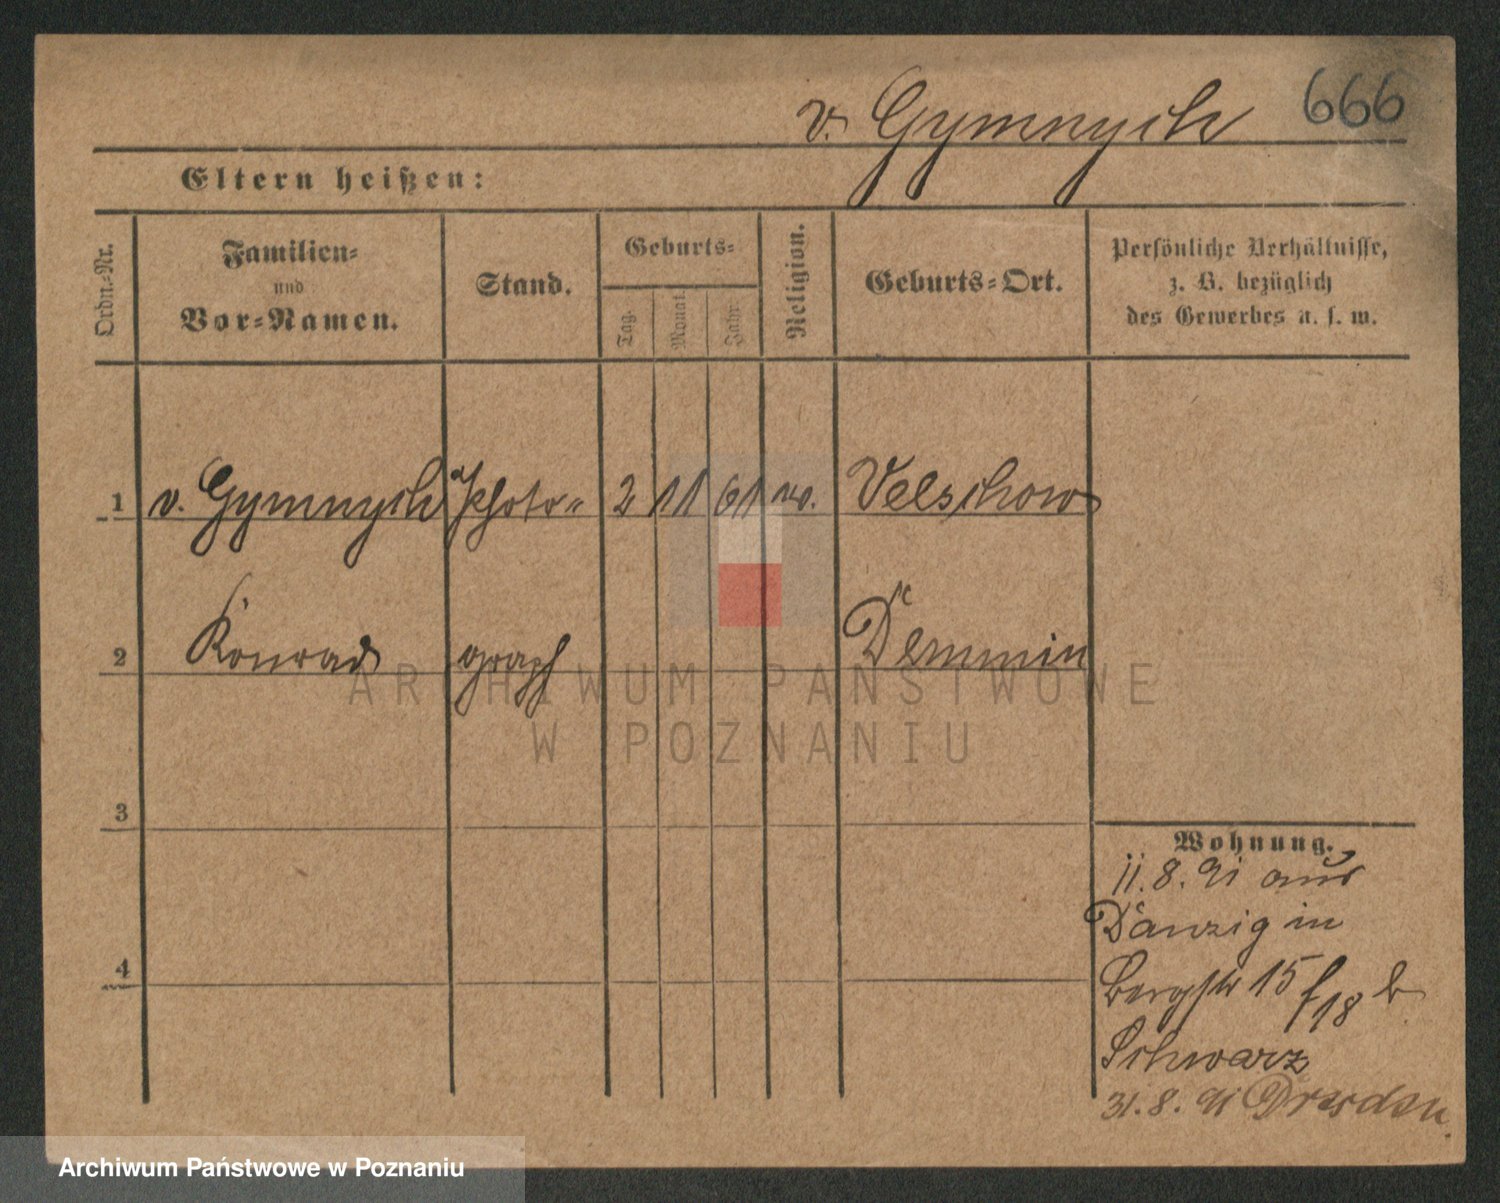 v. Gymnych 666
Eltern heißen:
Ordn.-Nr.
Familien-
und
Vor-Namen.
Stand.
Geburts-
Tag.
Monat.
Jahr.
Religion.
Geburts-Ort.
Persönliche Verhältnisse,
z. B. bezüglich
des Gewerbes u. s. w.
1 v. Gymnych Photo- 2 11 61 Velschow
2 Konrad graph Demmin
3
4
Wohnung.
11.8.91 aus
Danzig in
Bergstr 15 18 b
Schwarz
31.8.91 Dresden
ARCHIWUM PAŃSTWOWE
W POZNANIU
Archiwum Państwowe w Poznaniu